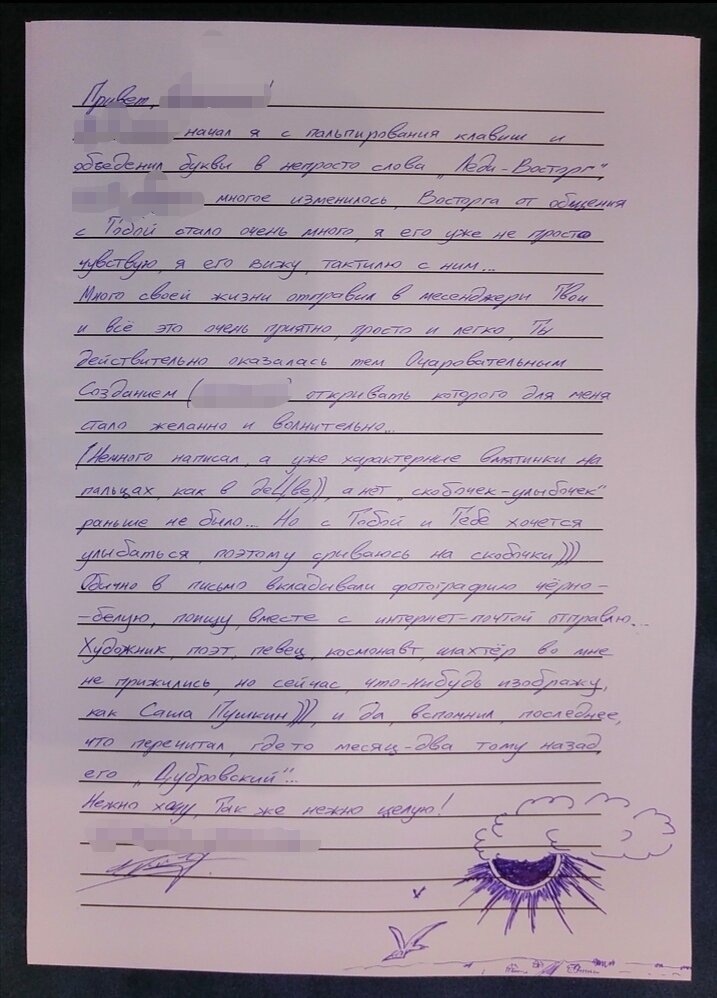 Привет, !
начал я с пальпирования клавиш и
объеденил букви в непросто слова „Леди-Восторг",
многое изменилось, Восторга от общения
с Тобой стало очень много, я его уже не просто
чувствую, я его вижу, тактилю с ним...
Много своей жизни отправил в месенджери Твои
и всё это очень приятно, просто и легко, Ты
действительно оказалась тем Очаровательным
Созданием ( ) откривать которого для меня
стало желанно и волнительно...
(Немного написал, а уже характерные вмятинки на
пальцах, как в деЦве)), а нет „скобочек-улыбочек"
раньше не было... Но с Тобой и Тебе хочется
улыбаться, поэтому срываюсь на скобочки)))
Обично в письмо вкладывали фотографию чёрно-
-белую, поищу, вместе с интернет-почтой отправлю...
Художник, поэт, певец, космонавт, шахтёр во мне
не прижились, но сейчас, что-нибудь изображу,
как Саша Пушкин))), и да, вспомнил, последнее,
что перечитал, где то месяц-два тому назад,
его „Дубровский"...
Нежно хочу, Так же нежно целую!